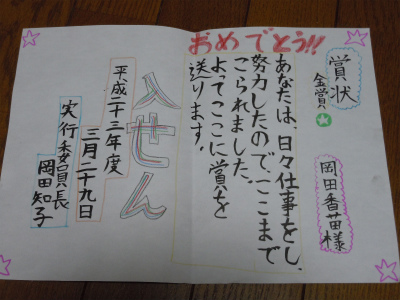 おめでとう!!
賞状
金賞
岡田香苗様
あなたは、日々仕事をし、
努力したので、ここまで
こられました。
よってここに賞を
送ります。
入せん
平成二十三年度
三月二十九日
実行委員長
岡田知子